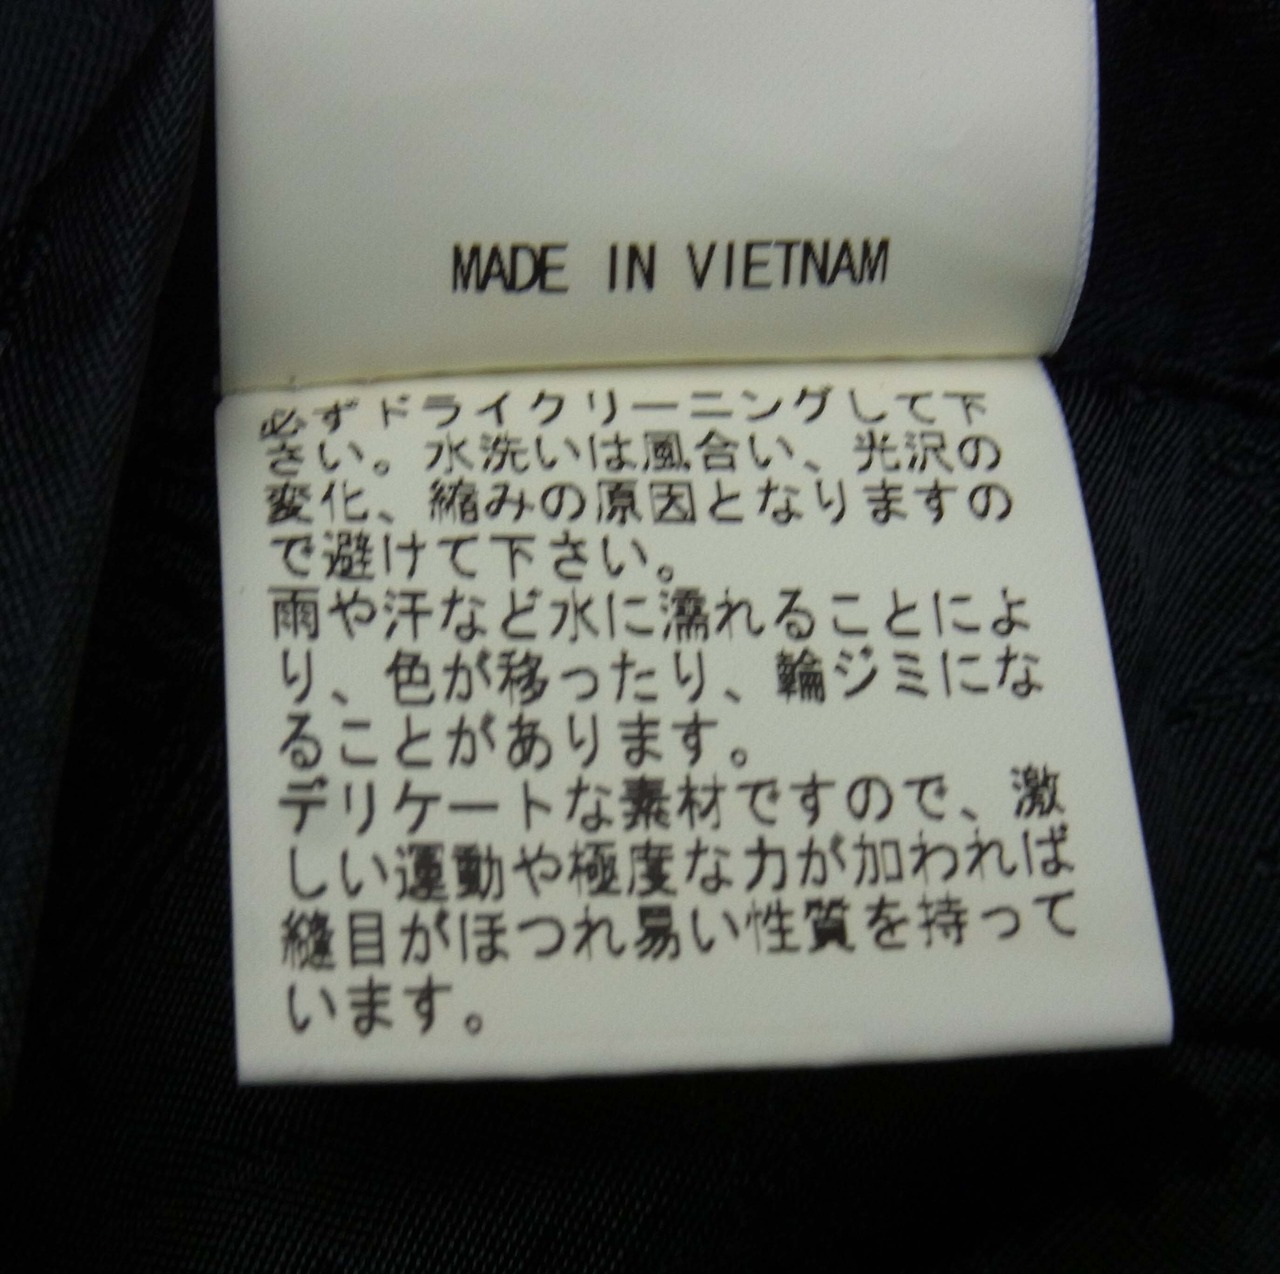 MADE IN VIETNAM
必ずドライクリーニングして下
さい。水洗いは風合い、光沢の
変化、縮みの原因となりますの
で避けて下さい。
雨や汗など水に濡れることによ
り、色が移ったり、輪ジミにな
ることがあります。
デリケートな素材ですので、激
しい運動や極度な力が加われば
縫目がほつれ易い性質を持って
います。